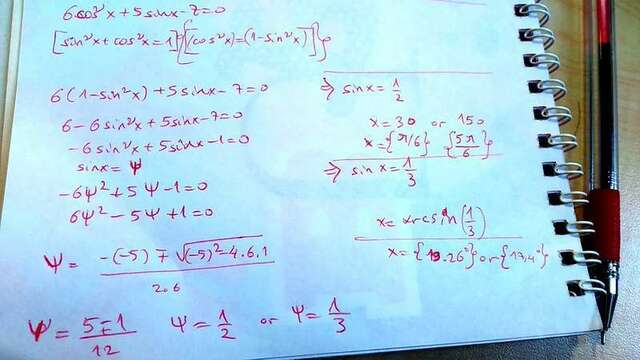 6cos²x + 5sinx - 7 = 0
[sin²x + cos²x = 1] [cos²x) = (1 - sin²x)]
6(1 - sin²x) + 5sinx - 7 = 0
6 - 6sin²x + 5sinx - 7 = 0
-6sin²x + 5sinx - 1 = 0
sinx = Ψ
-6Ψ² + 5Ψ - 1 = 0
6Ψ² - 5Ψ + 1 = 0
Ψ = -(-5) ∓ √(-5)² - 4.6.1
2.6
Ψ = 5∓1 Ψ = 1/2 or Ψ = 1/3
12
⇒ sinx = 1/2
x = 30 or 150
x = {π/6} {5π/6}
⇒ sinx = 1/3
x = arcsin(1/3)
x = {19.26°} or {17,4°}